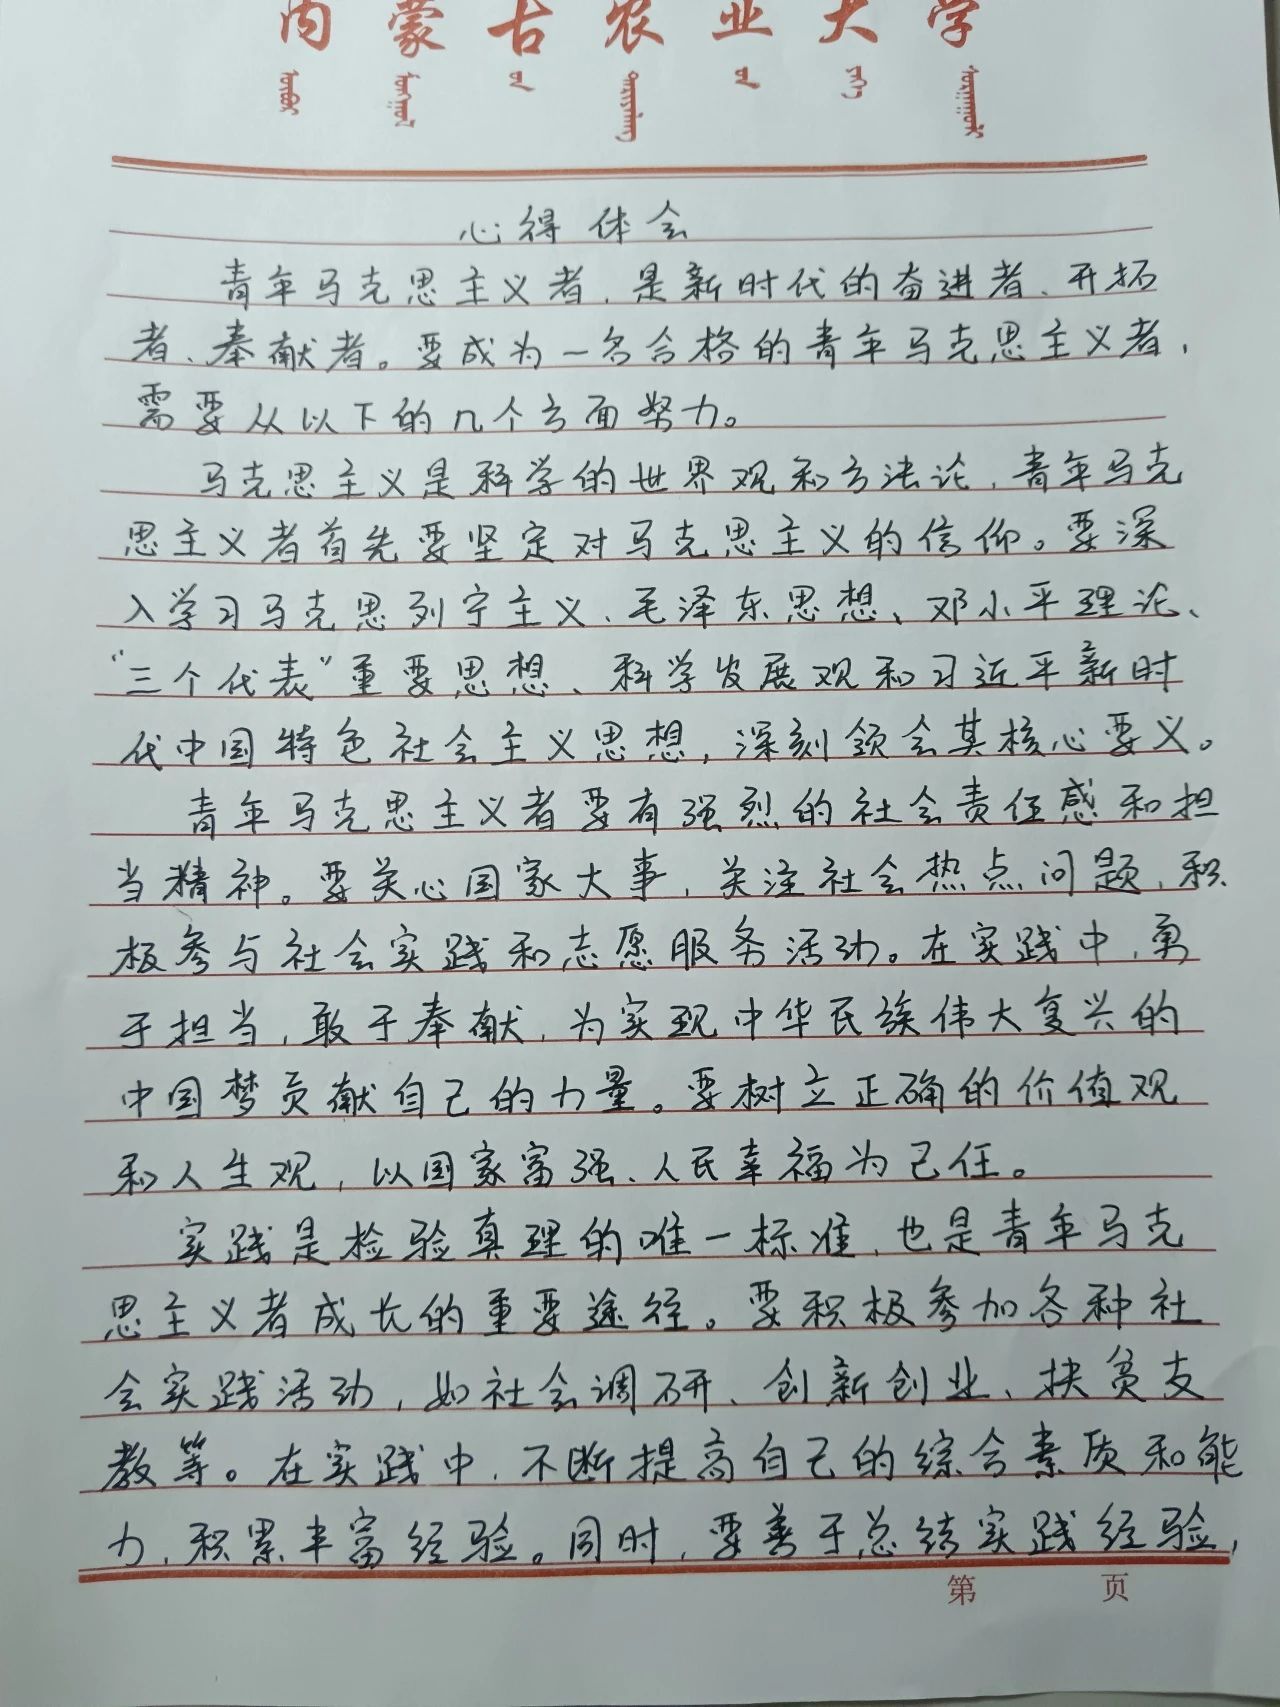 内蒙古农业大学
心得体会
青年马克思主义者，是新时代的奋进者、开拓
者、奉献者。要成为一名合格的青年马克思主义者，
需要从以下的几个方面努力。
马克思主义是科学的世界观和方法论，青年马克
思主义者首先要坚定对马克思主义的信仰。要深
入学习马克思列宁主义、毛泽东思想、邓小平理论、
“三个代表”重要思想、科学发展观和习近平新时
代中国特色社会主义思想，深刻领会其核心要义。
青年马克思主义者要有强烈的社会责任感和担
当精神。要关心国家大事，关注社会热点问题，积
极参与社会实践和志愿服务活动。在实践中，勇
于担当，敢于奉献，为实现中华民族伟大复兴的
中国梦贡献自己的力量。要树立正确的价值观
和人生观，以国家富强、人民幸福为己任。
实践是检验真理的唯一标准，也是青年马克
思主义者成长的重要途径。要积极参加各种社
会实践活动，如社会调研、创新创业、扶贫支
教等。在实践中，不断提高自己的综合素质和能
力，积累丰富经验。同时，要善于总结实践经验，
第 页